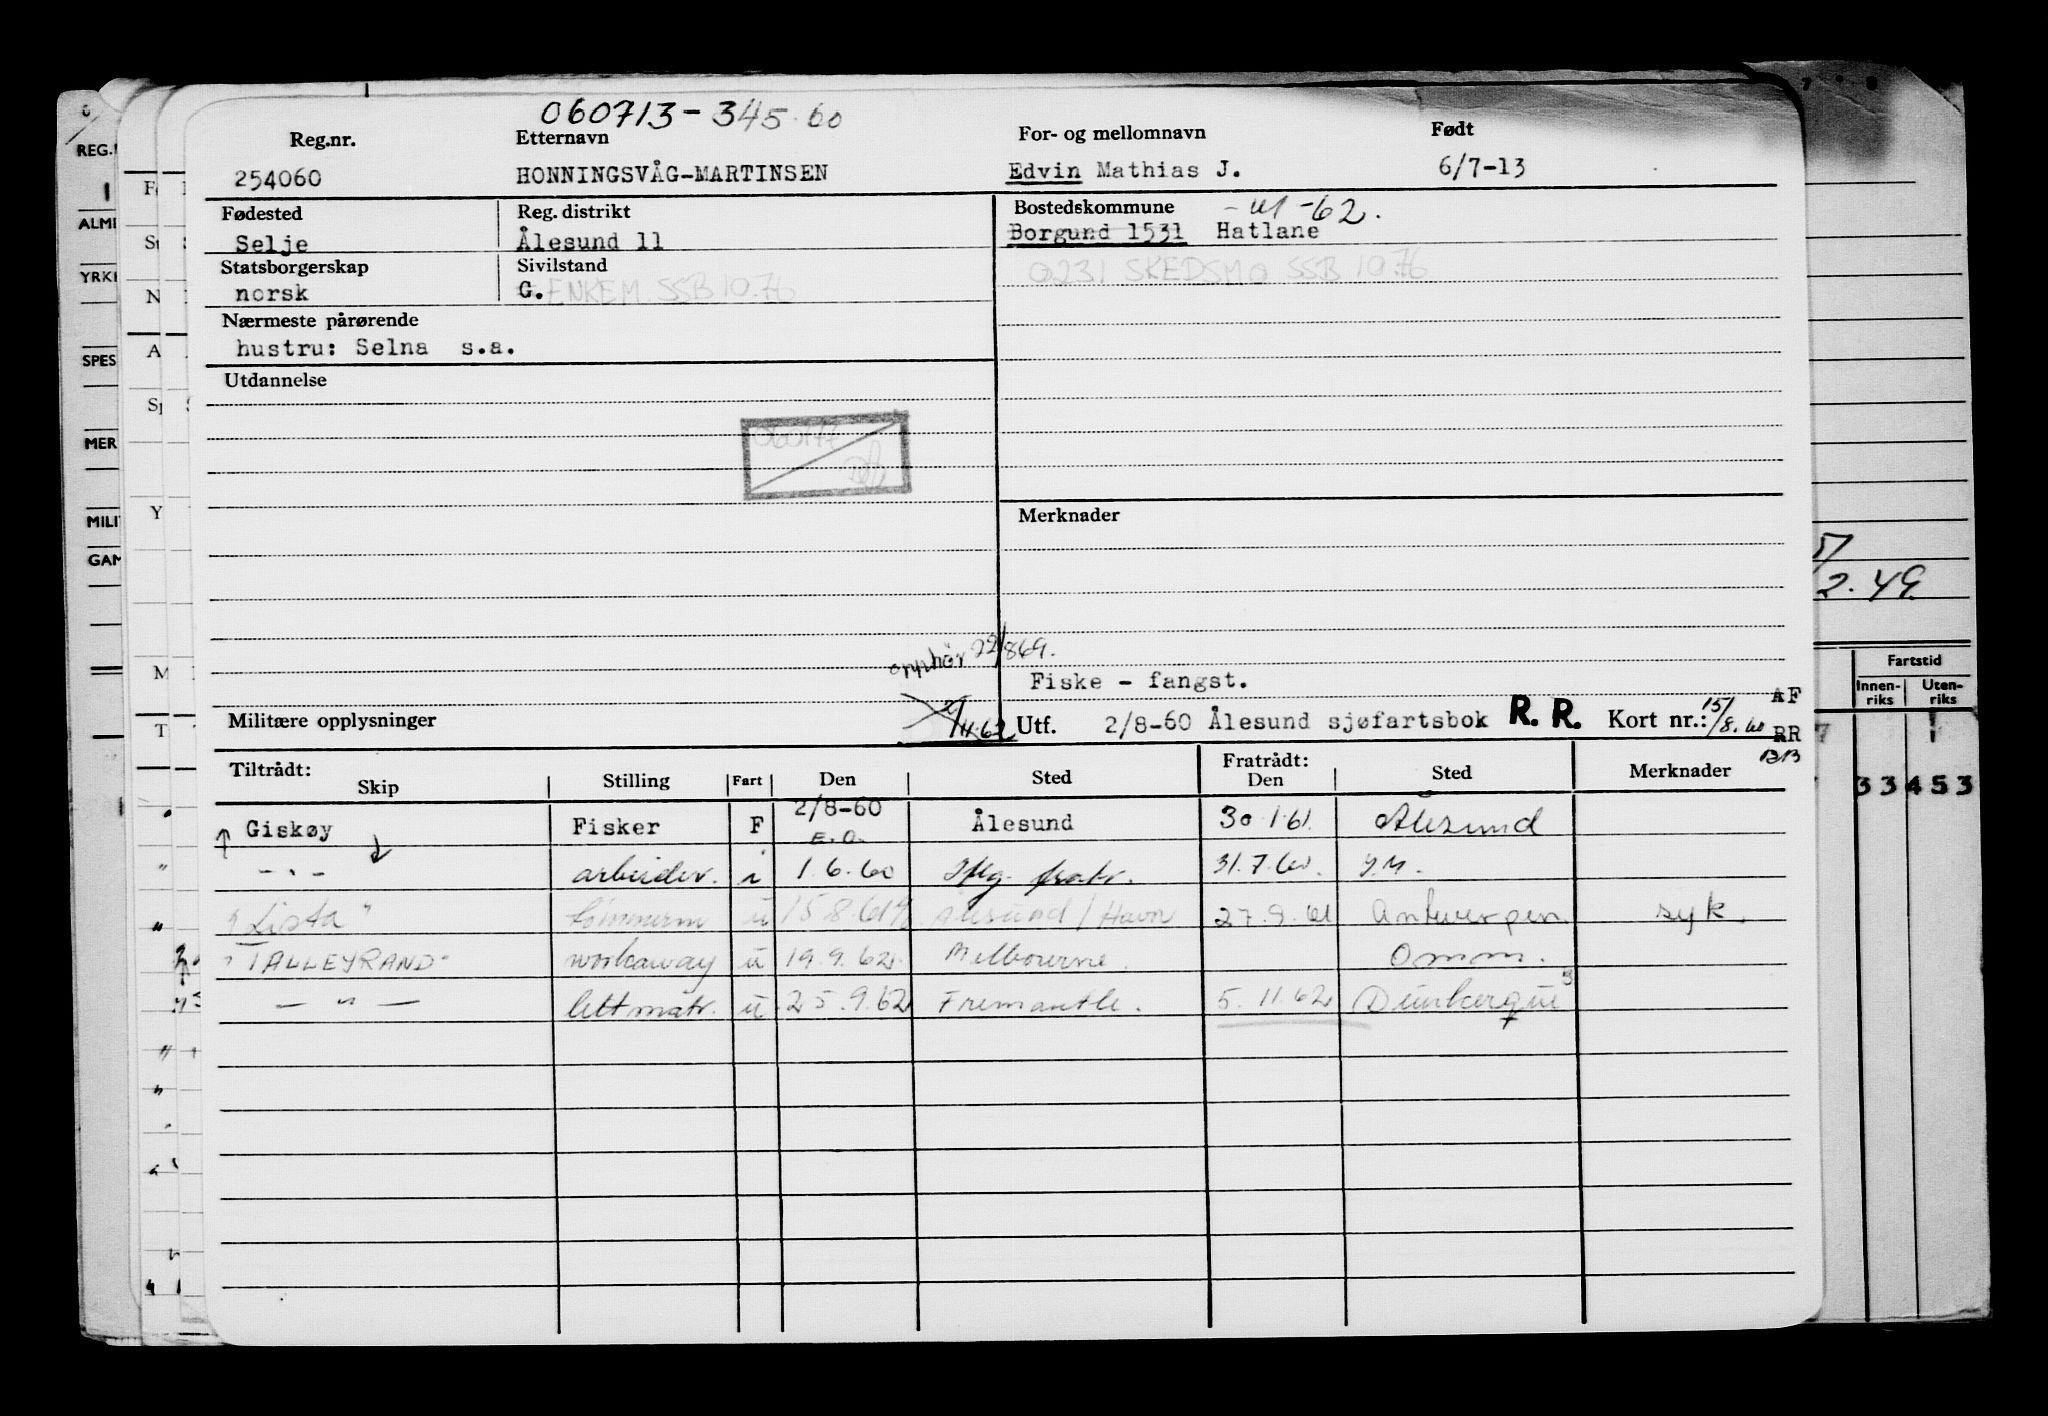 060713-345.60
Reg.nr. Etternavn For- og mellomnavn Født
254060 HONNINGSVÅG-MARTINSEN Edvin Mathias J. 6/7-13
Fødested Reg. distrikt Bostedskommune -62.
Selje Ålesund 11 Borgund 1531 Hatlane
Statsborgerskap Sivilstand 0231 SKEDSMO SSB 10.76
norsk G. ENKEM. SSB 10.76
Nærmeste pårørende
hustru: Selna s.a.
Utdannelse
Merknader
opphør 22/869.
Fiske - fangst.
AF
Militære opplysninger 2/4.62 Utf. 2/8-60 Ålesund sjøfartsbok R. R. Kort nr.: 15/8.60 RR
BB
Tiltrådt: Fratrådt:
Skip Stilling Fart Den Sted Den Sted Merknader
Giskøy Fisker F 2/8-60 Ålesund 30.1.61. Ålesund
E.O.
- " - arbeider. i 1.6.60 fratr. 31.7.60. J.M.
"Lista" tømmerm u 15.8.61 Ålesund/Havn 27.9.61 Antwerpen syk.
"TALLEYRAND" workaway u 19.9.62. Melbourne. Omm.
- " - lettmatr. u 25.9.62 Fremantle. 5.11.62 Dunkerque
REG.
ALM
YRK
SPES
MER
MILI
GAM
2.49.
Fartstid
Innen-riks Uten-riks
33 453